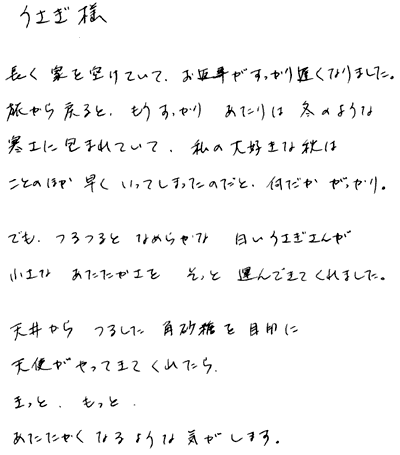 うさぎ様
長く家を空けていて、お返事がすっかり遅くなりました。
旅から戻ると、もうすっかり あたりは 冬のような
寒さに包まれていて、私の大好きな秋は
ことのほか 早く いってしまったのだと、何だか がっかり。
でも、つるつると なめらかな 白いうさぎさんが
小さな あたたかさを そっと 運んできてくれました。
天井から つるした 角砂糖を目印に
天使がやってきてくれたら、
きっと、もっと、
あたたかく なるような 気がします。